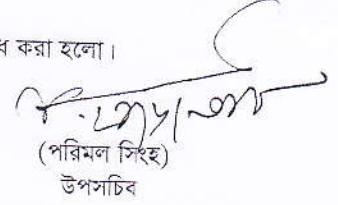 করা হলো।
(পরিমল সিংহ)
উপসচিব